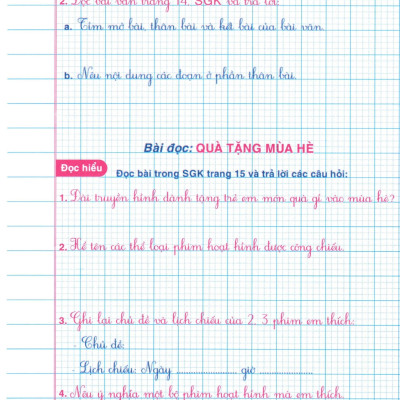 2. Đọc bài văn trang 14, SGK và trả lời:
a. Tìm mở bài, thân bài và kết bài của bài văn.
b. Nêu nội dung các đoạn ở phần thân bài.
Bài đọc: QUÀ TẶNG MÙA HÈ
Đọc hiểu
Đọc bài trong SGK trang 15 và trả lời các câu hỏi:
1. Đài truyền hình dành tặng trẻ em món quà gì vào mùa hè?
2. Kể tên các thể loại phim hoạt hình được công chiếu.
3. Ghi lại chủ đề và lịch chiếu của 2, 3 phim em thích:
- Chủ đề:
- Lịch chiếu: Ngày ........................ giờ ........................
4. Nêu ý nghĩa một bộ phim hoạt hình mà em thích.